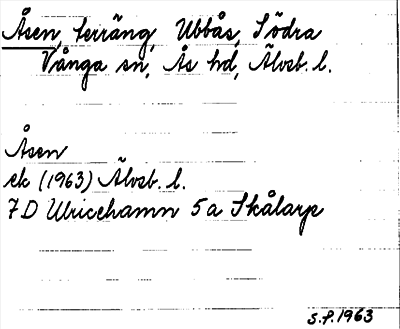 Åsen, terräng, Ubbås, Södra
Vånga sn, Ås hd, Älvsb. l.
Åsen
ek (1963) Älvsb. l.
7D Ulricehamn 5a Skålarp
S.P. 1963